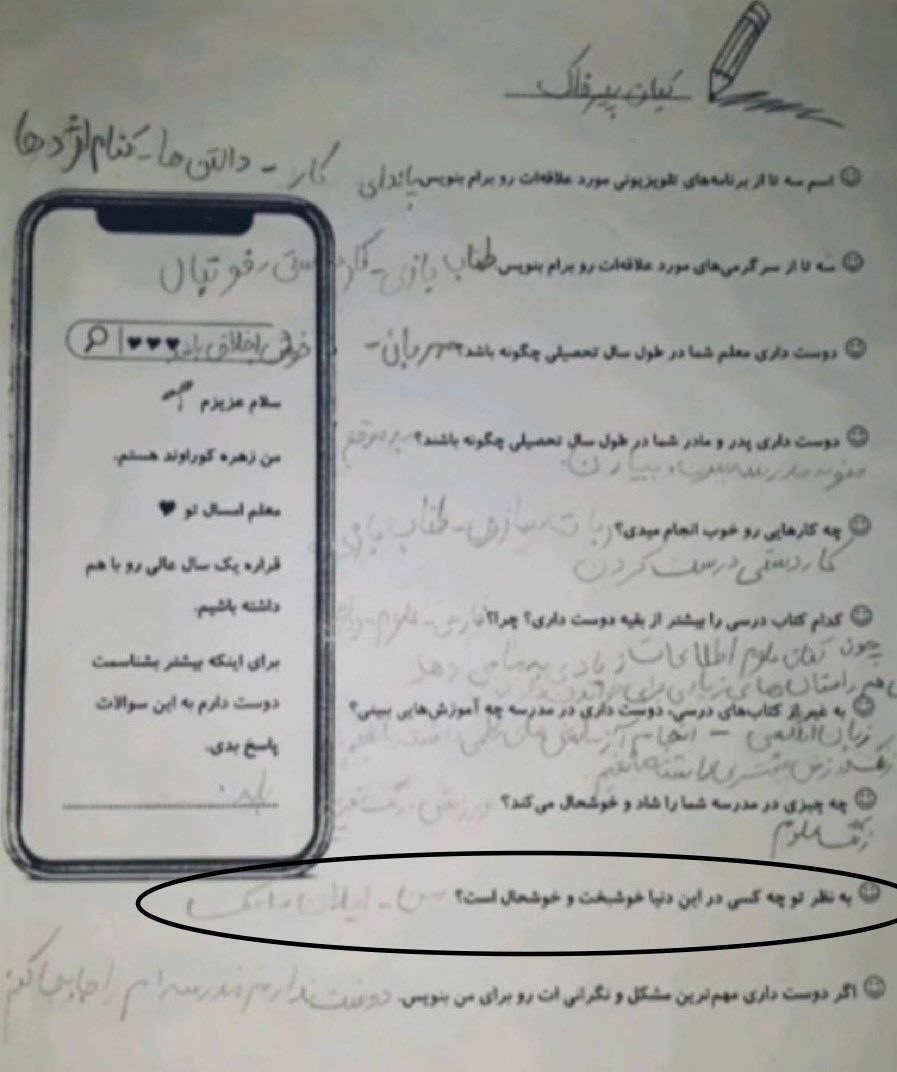 کیان پیرفلک
اسم سه تا از برنامه‌های تلویزیونی مورد علاقه‌ات رو برام بنویس پاندای
کار - دالتن ها - کنام اژدها
سه تا از سرگرمی‌های مورد علاقه‌ات رو برام بنویس طناب بازی - کاردستی - فوتبال
دوست داری معلم شما در طول سال تحصیلی چگونه باشد؟ مهربان -
خوش اخلاق باشد
دوست داری پدر و مادر شما در طول سال تحصیلی چگونه باشند؟ به موقع
منو به مدرسه ببرند و بیارن.
چه کارهایی رو خوب انجام میدی؟ ربات سازی - طناب بازی -
کاردستی درست کردن
کدام کتاب درسی را بیشتر از بقیه دوست داری؟ چرا؟ فارسی - علوم -
چون کتاب علوم اطلاعات زیادی به ما می دهد
هم داستان های زیادی برای
به غیر از کتاب‌های درسی، دوست داری در مدرسه چه آموزش‌هایی ببینی؟
زبان انگلیسی - انجام آزمایش های علمی
زنگ ورزش بیشتری داشته باشیم
چه چیزی در مدرسه شما را شاد و خوشحال می‌کند؟ ورزش - زنگ
زنگ علوم
به نظر تو چه کسی در این دنیا خوشبخت و خوشحال است؟ من - ایلان ماسک
اگر دوست داری مهم‌ترین مشکل و نگرانی ات رو برای من بنویس. دوست ندارم مدرسه ام را جابجا کنم
سلام عزیزم
من زهره کوراوند هستم.
معلم امسال تو ♥
قراره یک سال عالی رو با هم
داشته باشیم.
برای اینکه بیشتر بشناسمت
دوست دارم به این سوالات
پاسخ بدی.